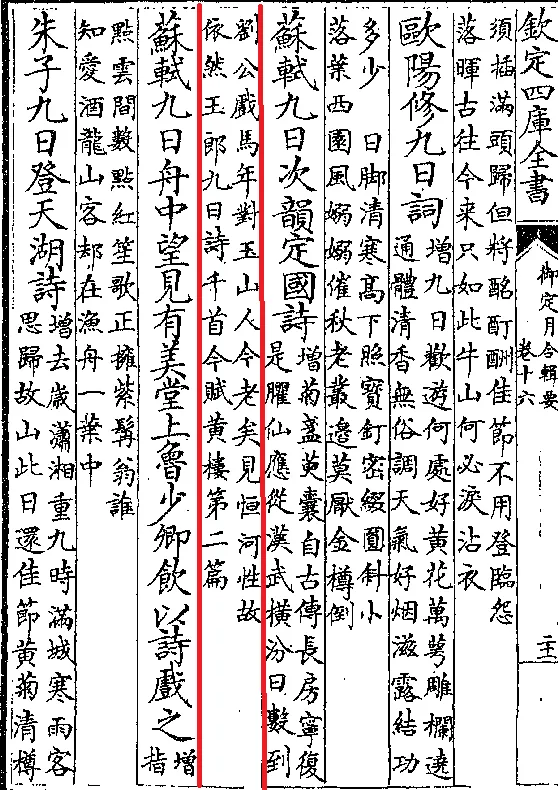 欽定四庫全書
御定月令輯要
卷十六
須插滿頭歸但將酩酊酬佳節不用登臨怨
落暉古往今來只如此牛山何必淚沾衣
歐陽修九日詞
增九日歡遊何處好黄花萬蕚雕欄遶
通體清香無俗調天氣好烟滋露結功
多少 日脚清寒髙下照寳釘密綴圓斜小
落葉西園風嫋嫋催秋老叢邉莫厭金樽倒
蘇軾九日次韻定國詩
增菊盞萸囊自古傳長房寧復
是臞仙應從漢武橫汾日數到
劉公戲馬年對玉山人今老矣見恒河性故
依然王郎九日詩千首今賦黄樓第二篇
蘇軾九日舟中望見有美堂上魯少卿飲以詩戲之
增
指
點雲間數點紅笙歌正擁紫髯翁誰
知愛酒龍山客却在漁舟一葉中
朱子九日登天湖詩
增去嵗瀟湘重九時滿城寒雨客
思歸故山此日還佳節黄菊清樽